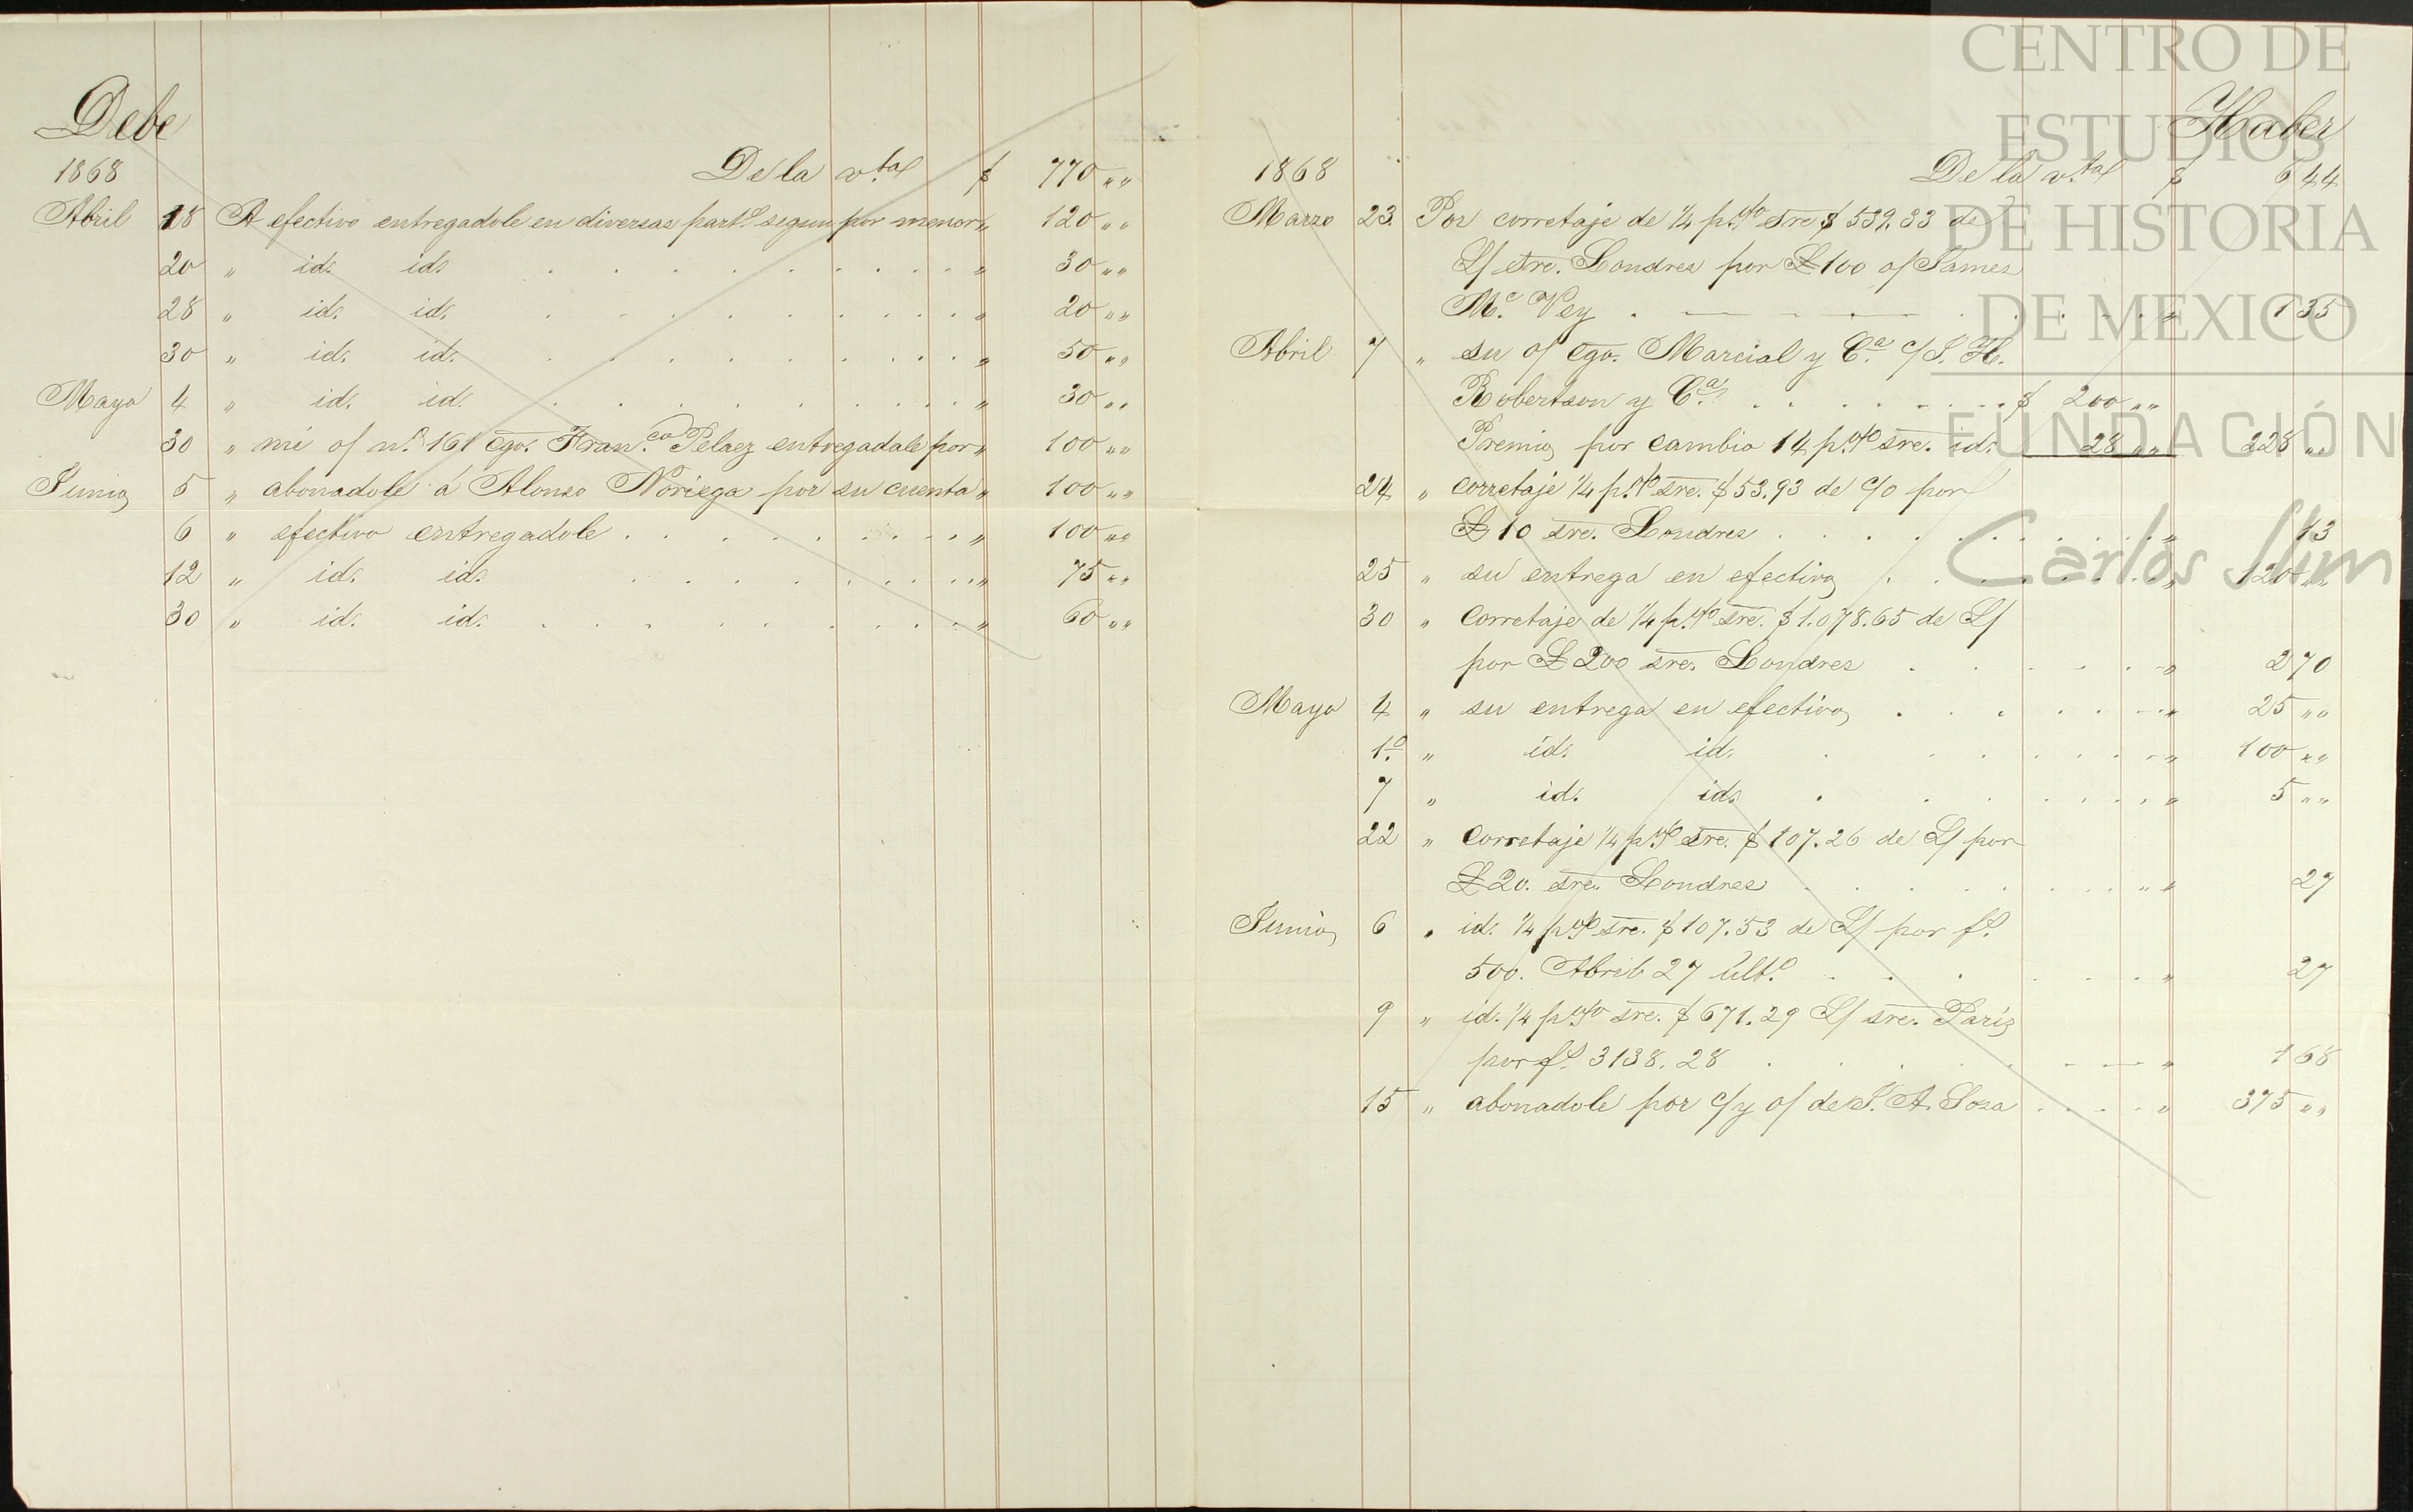 Debe
1868 De la v.ta $ 770 " "
Abril 18 A efectivo entregadole en diversas part.s segun por menor " 120 " "
20 " id. id. " 30 " "
28 " id. id. " 20 " "
30 " id. id. " 50 " "
Mayo 4 " id. id. " 30 " "
30 " mi o/ n.o 161 cgo. Fran.co Pelaez entregadale por " 100 " "
Junio 5 " abonadole á Alonso Noriega por su cuenta " 100 " "
6 " efectivo entregadole " 100 " "
12 " id. id. " 75 " "
30 " id. id. " 60 " "
Haber
1868 De la v.ta $ 6 44
Marzo 23 Por corretaje de 1/4 p.% sre $ 539.33 de
L/ sre. Londres por £ 100 o/ James
M.c Vey " 1 35
Abril 7 " su o/ cgo. Marcial y C.a c/ S. H.
Robertson y C.a $ 200 " "
Premio por cambio 14 p.% sre. id. 28 " " 228 " "
24 " corretaje 1/4 p.% sre. $ 53.93 de c/o por
£ 10 sre. Londres " 13
25 " su entrega en efectivo " 120 " "
30 " Corretaje de 1/4 p.% sre. $ 1.078.65 de L/
por £ 200 sre. Londres " 2 70
Mayo 4 " su entrega en efectivo " 25 " "
1.o " id. id. " 100 " "
7 " id. id. " 5 " "
22 " Corretaje 1/4 p.% sre. $ 107.26 de L/ por
£ 20. sre. Londres " 27
Junio 6 " id. 1/4 p.% sre. $ 107.53 de L/ por f.s
500. Abril 27 últ.o " 27
9 " id. 1/4 p.% sre. $ 671.29 L/ sre. Paris
por f.s 3138.28 " 1 68
15 " abonadole por c/ y o/ de S. A. Sosa " 375 " "
CENTRO DE
ESTUDIOS
DE HISTORIA
DE MEXICO
FUNDACIÓN
Carlos Slim